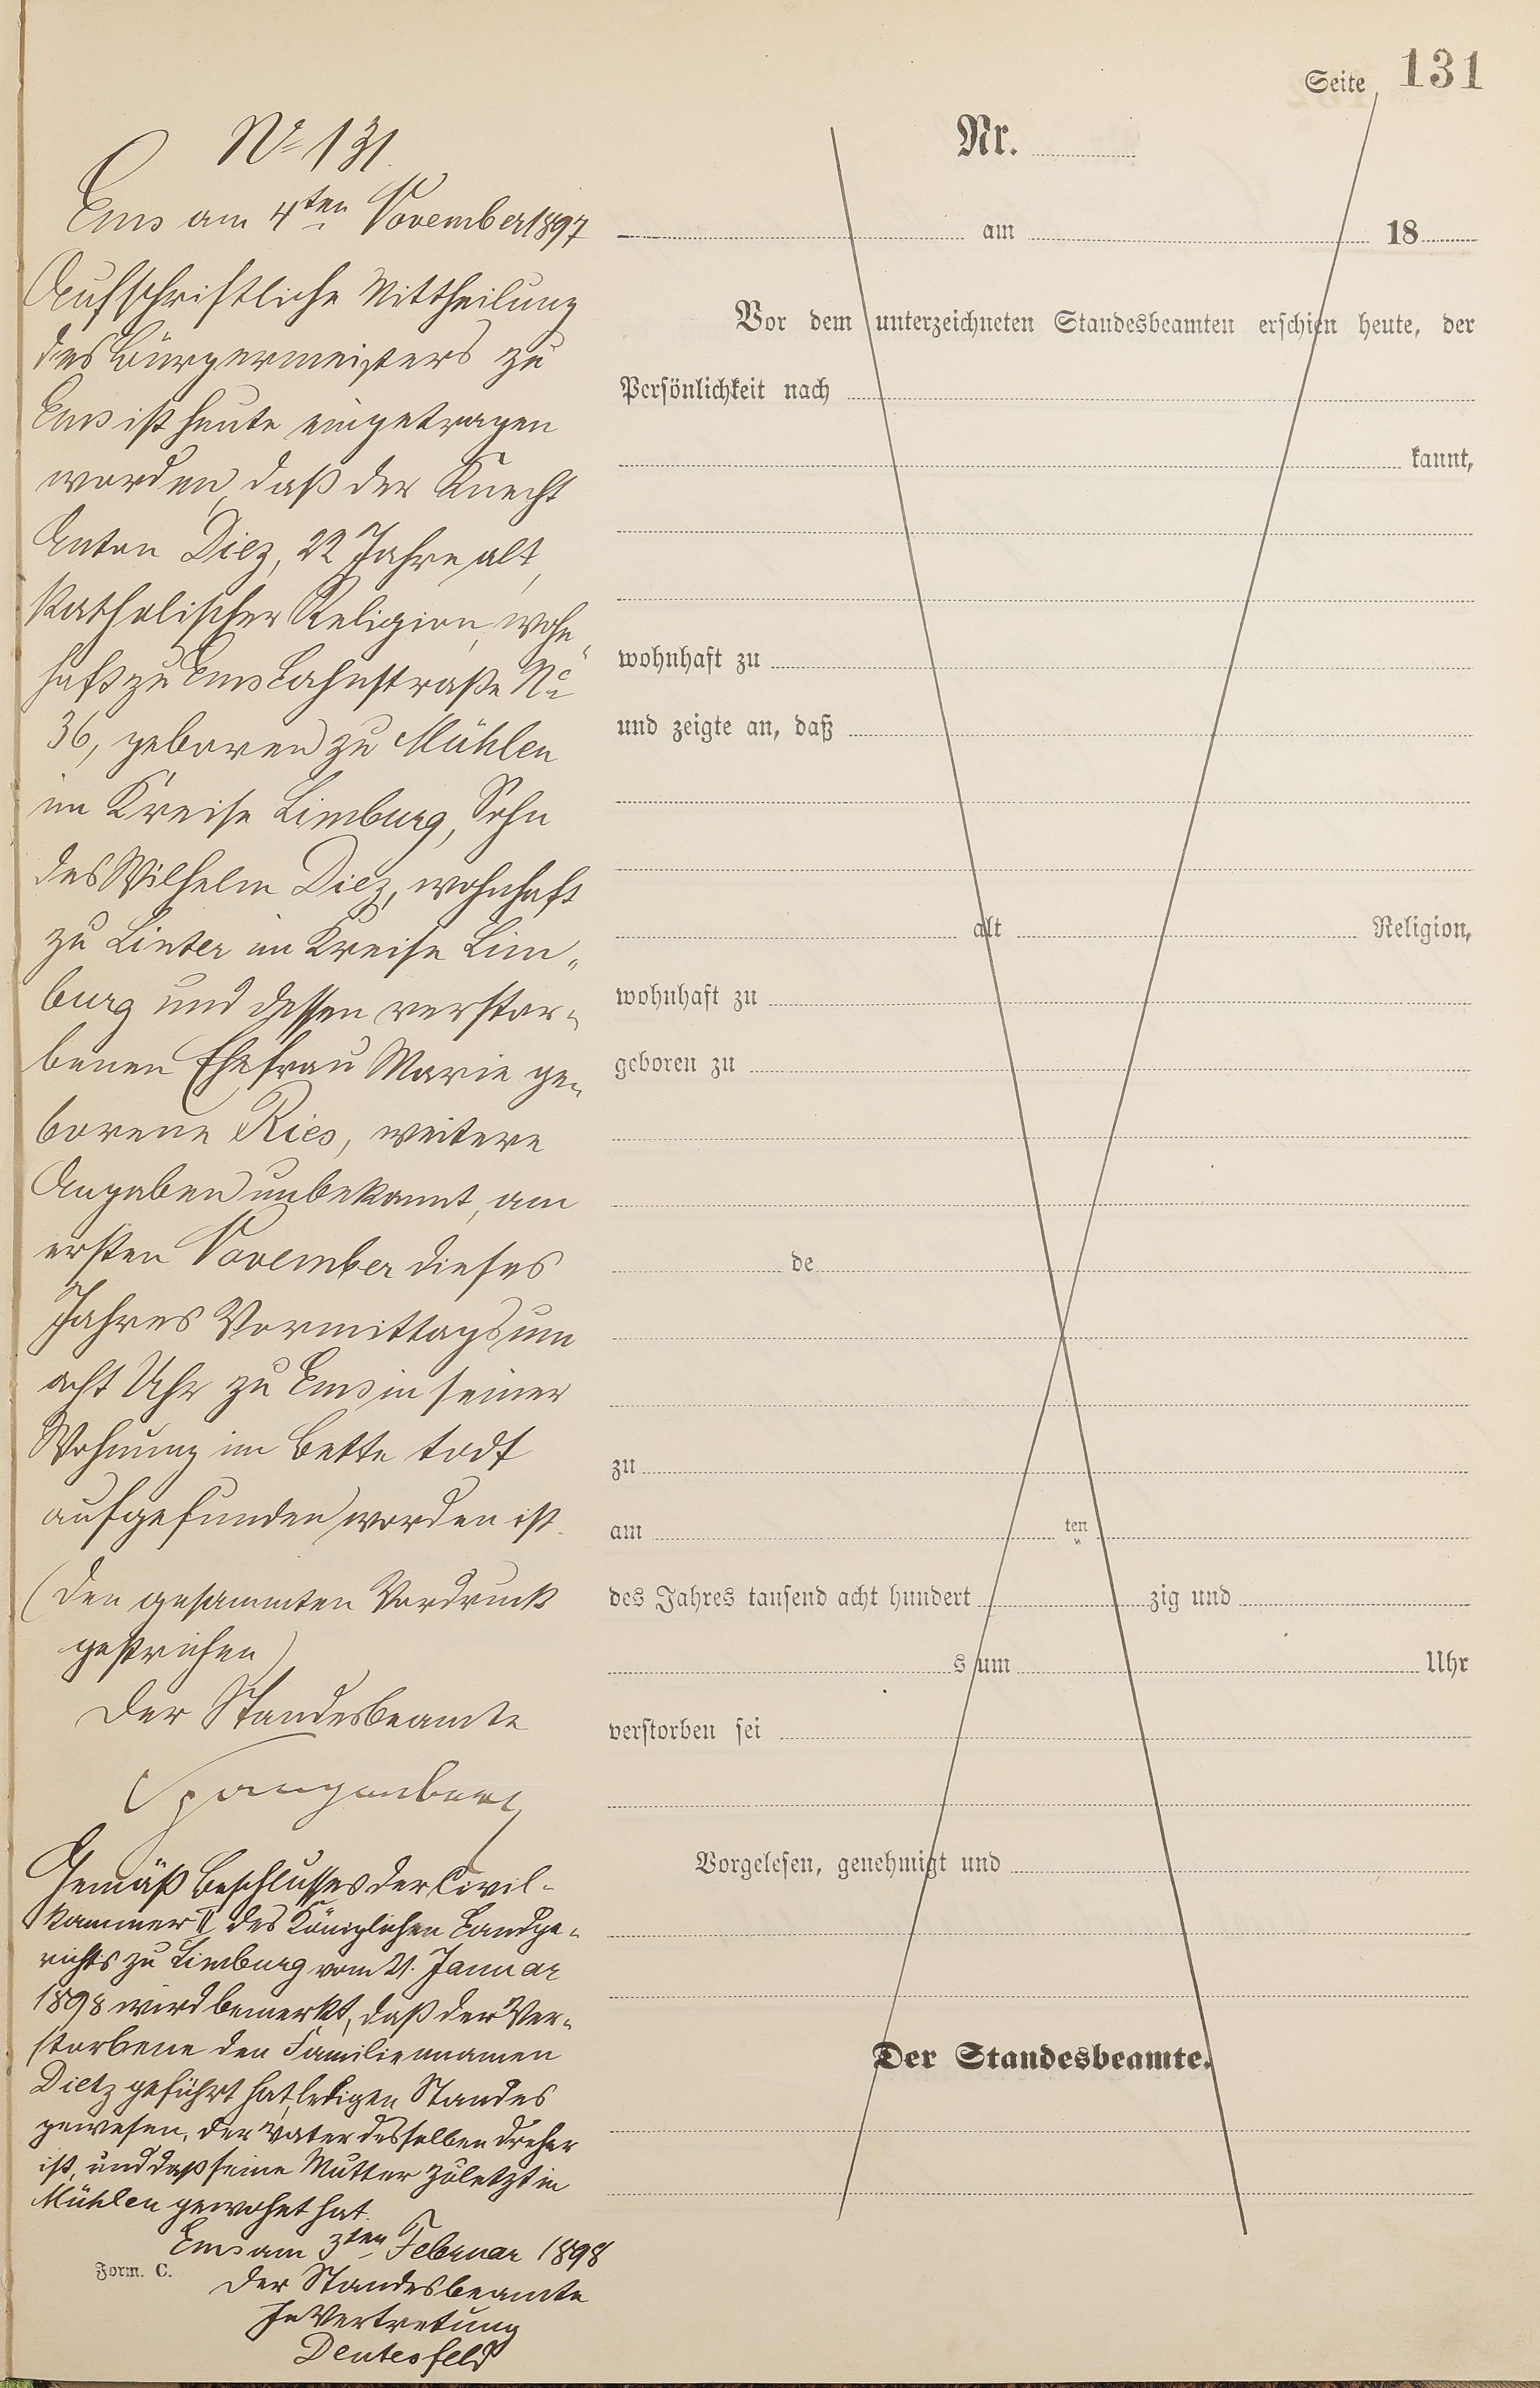 Seite 131
No 131.
Ems am 4ten November 1897
Auf schriftliche Mittheilung
des Bürgermeisters zu
Ems ist heute eingetragen
worden, daß der Knecht
Anton Diez, 22 Jahre alt,
katholischer Religion, wohn„
haft zu Ems Lahnstraße No
36, geboren zu Mühlen
im Kreise Limburg, Sohn
des Wilhelm Diez, wohnhaft
zu Linter im Kreise Lim„
burg und dessen verstor„
benen Ehefrau Marie ge„
borene Ries, weitere
Angaben unbekannt, am
ersten November dieses
Jahres Vormittags um
acht Uhr zu Ems in seiner
Wohnung im Bette todt
aufgefunden worden ist.
(Den gesammten Vordruck
gestrichen)
Der Standesbeamte
Spangenberg
Gemäß Beschlusses der Civil-
kammer II des Königlichen Landge-
richts zu Limburg vom 21. Januar
1898 wird bemerkt, daß der Ver-
storbene den Familiennamen
Dietz geführt hat, ledigen Standes
gewesen, der Vater desselben Dreher
ist, und daß seine Mutter zuletzt in
Mühlen gewohnt hat.
Ems am 3ten Februar 1898
Der Standesbeamte
In Vertretung
Deutesfeld
Form. C.
Nr.
am 18
Vor dem unterzeichneten Standesbeamten erschien heute, der
Persönlichkeit nach
kannt,
wohnhaft zu
und zeigte an, daß
alt Religion,
wohnhaft zu
geboren zu
de
zu
am ten
des Jahres tausend acht hundert zig und
s um Uhr
verstorben sei
Vorgelesen, genehmigt und
Der Standesbeamte.